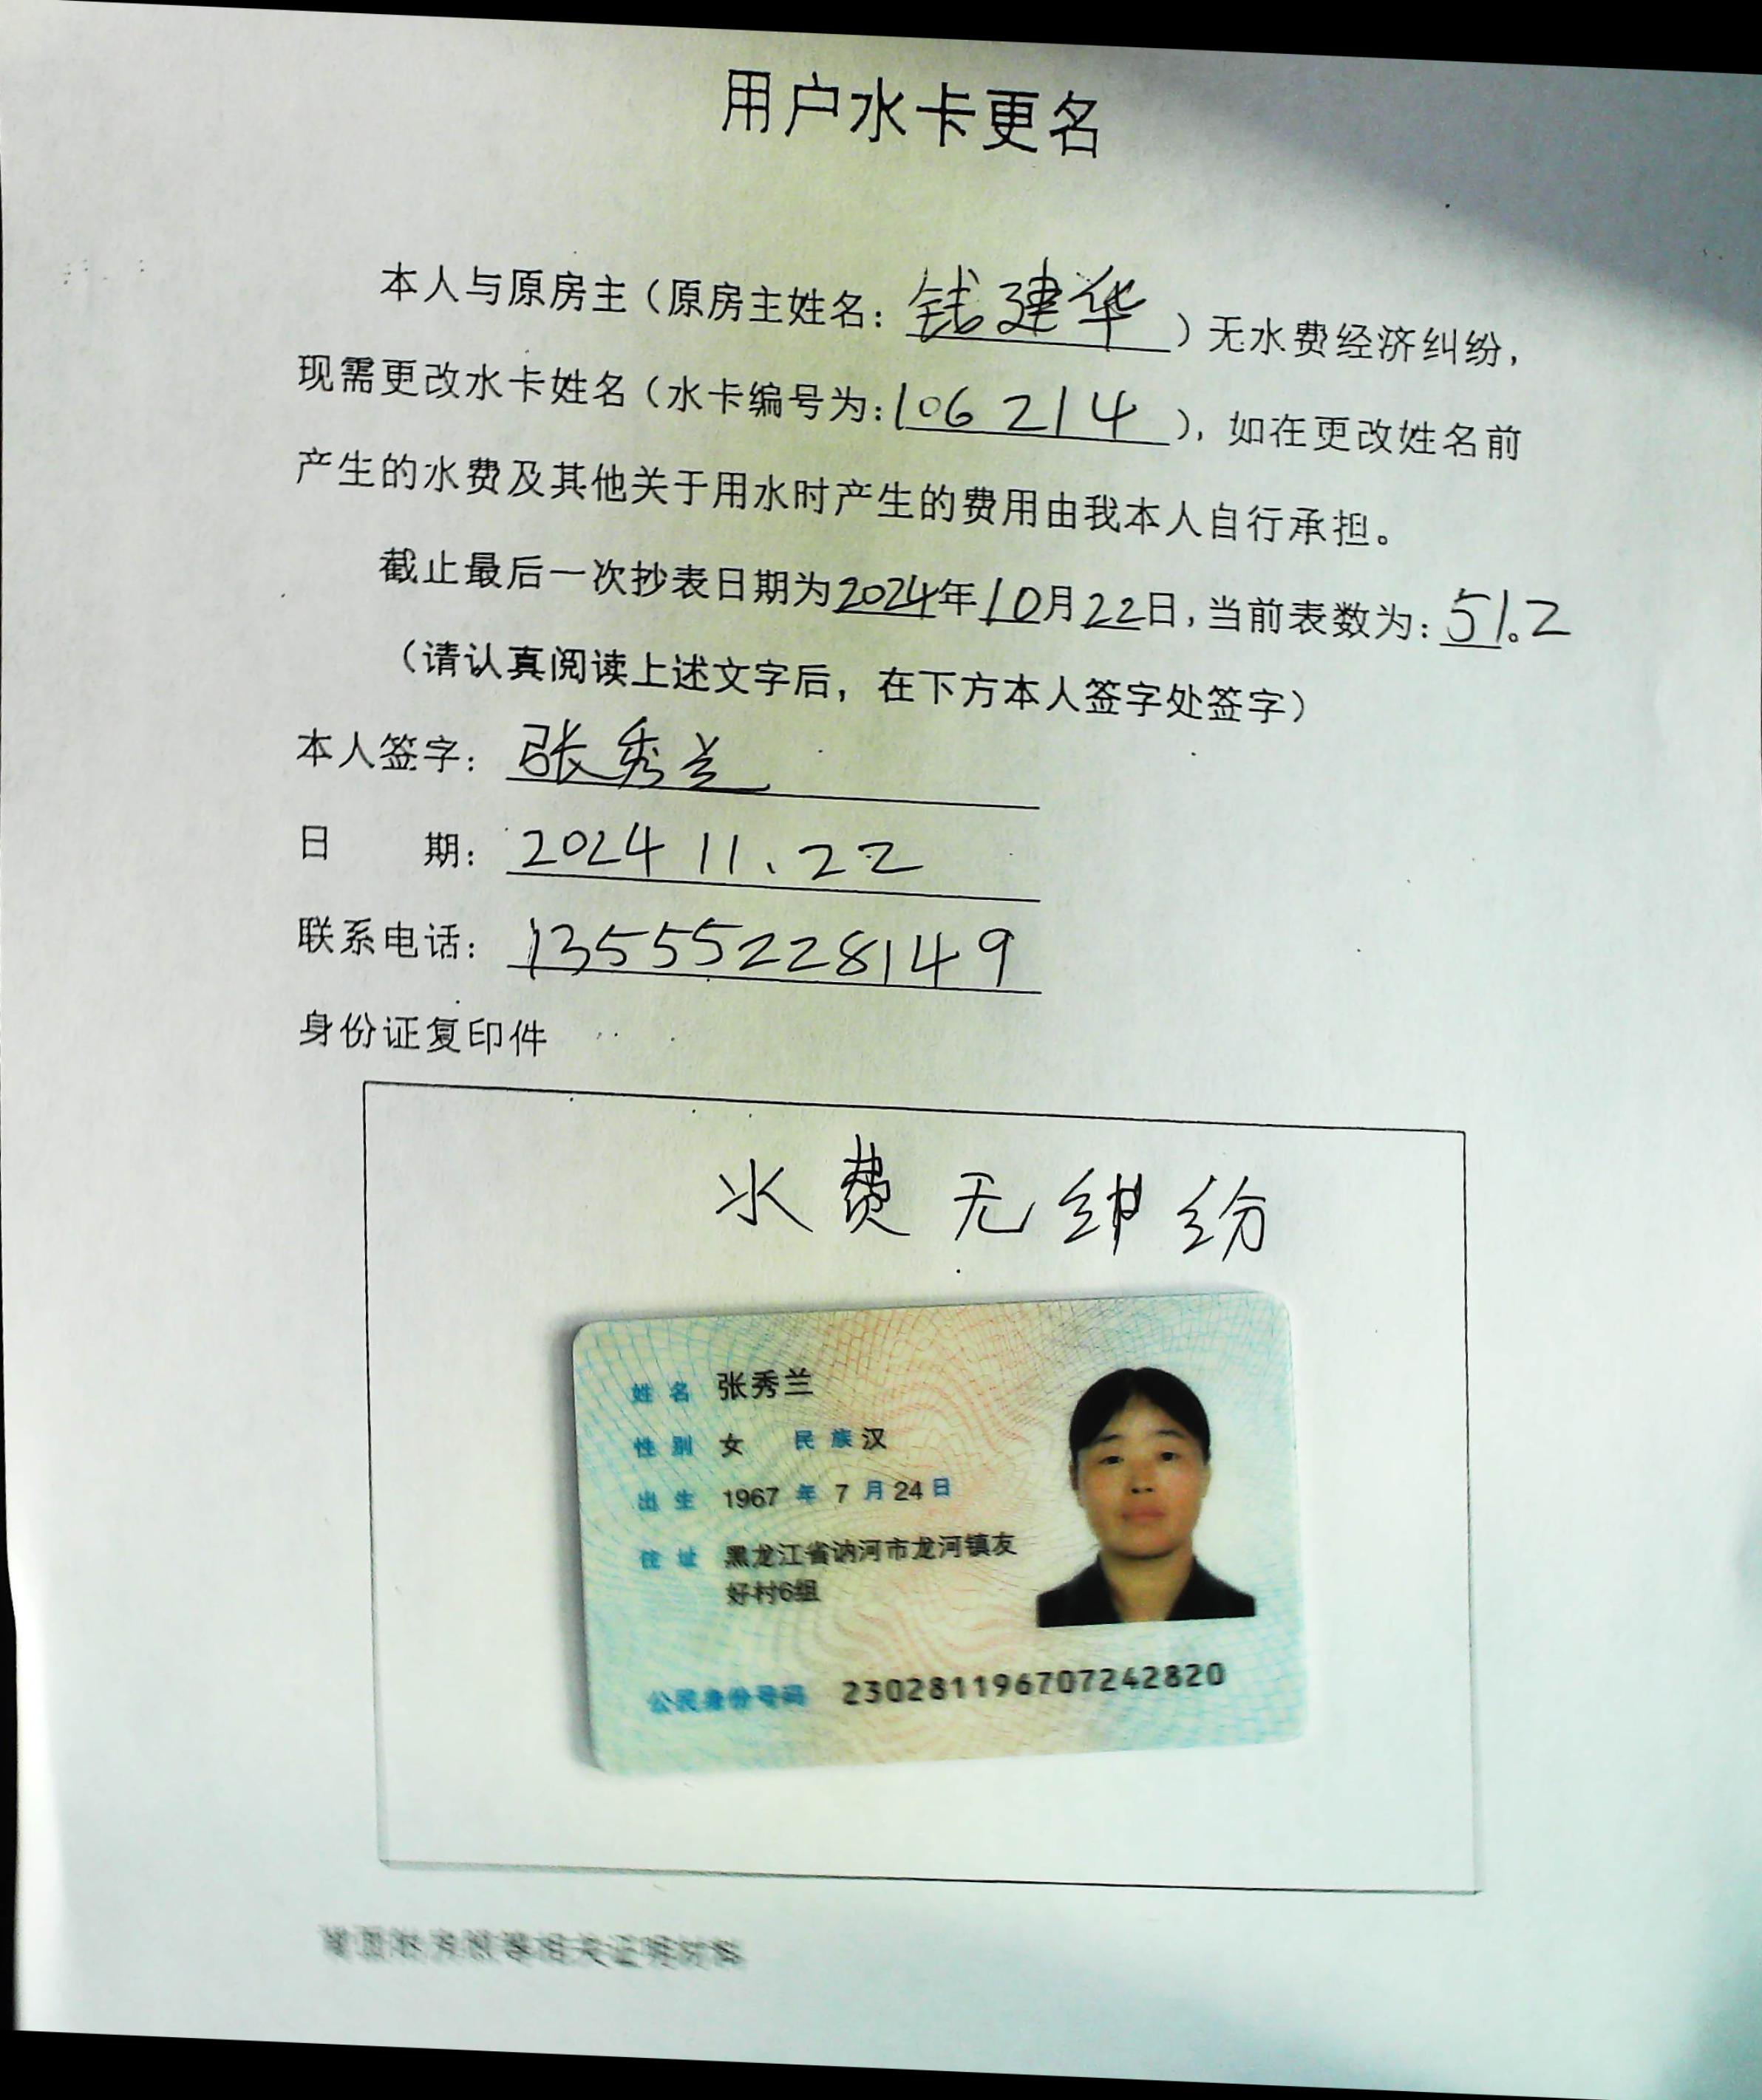 用户水卡更名
本人与原房主（原房主姓名：钱建华）无水费经济纠纷，
现需更改水卡姓名（水卡编号为：106214），如在更改姓名前
产生的水费及其他关于用水时产生的费用由我本人自行承担。
截止最后一次抄表日期为2024年10月22日，当前表数为：51.2
（请认真阅读上述文字后，在下方本人签字处签字）
本人签字：张秀兰
日 期：2024 11.22
联系电话：13555228149
身份证复印件
水费无纠纷
姓名 张秀兰
性别 女 民族 汉
出生 1967 年 7 月 24 日
住址 黑龙江省讷河市龙河镇友
好村6组
公民身份号码 230281196707242820
相关证明材料